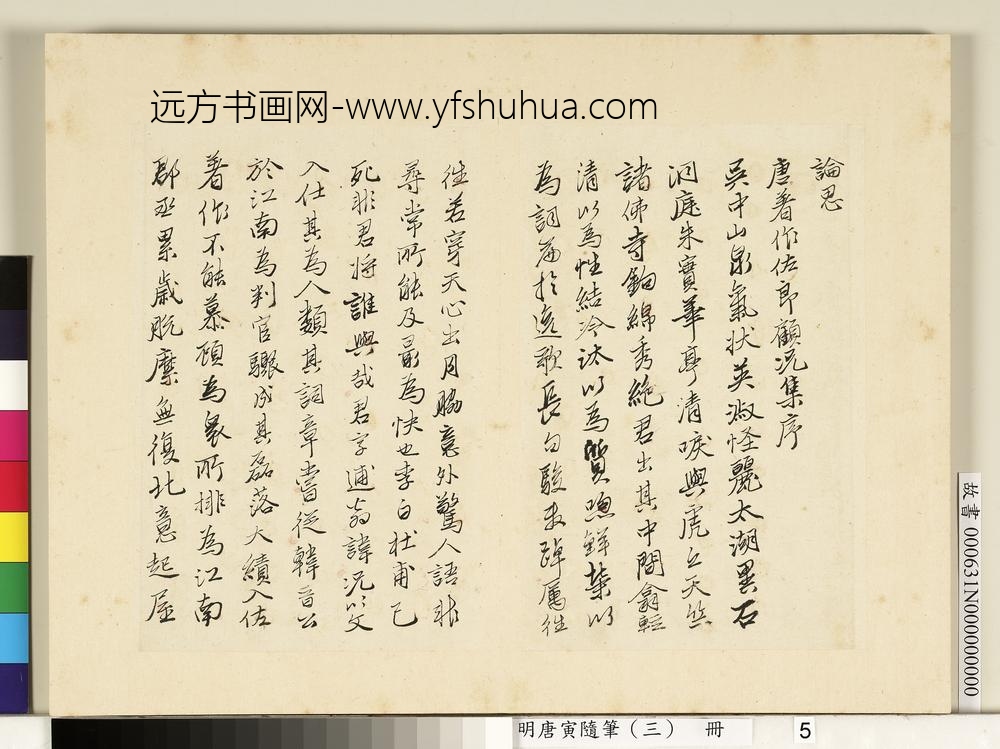 远方书画网-www.yfshuhua.com
論思
唐著作佐郎顧况集序
吳中山泉氣状英淑怪麗太湖異石
洞庭朱實華亭清唳與虎丘天竺
諸佛寺鉤綿秀絶君出其中間翕輕
清以為性結泠汰以為質煦鮮榮以
為詞篇於逸歌長句駿發踔厲徃
徃若穿天心出月脇意外驚人語非
尋常所能及最為快也李白杜甫已
死非君将誰與哉君字逋翁諱况以文
入仕其為人類其詞章嘗從韓晋公
於江南為判官驟成其磊落大績入佐
著作不能慕顧為衆所排為江南
郡丞累歲脱縻無復北意起屋
故書 000631N000000000
明唐寅隨筆（三） 冊
5